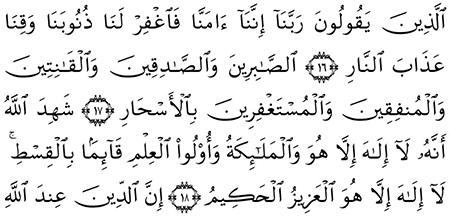 ٱلَّذِينَ يَقُولُونَ رَبَّنَآ إِنَّنَآ ءَامَنَّا فَٱغْفِرْ لَنَا ذُنُوبَنَا وَقِنَا
عَذَابَ ٱلنَّارِ ١٦ ٱلصَّٰبِرِينَ وَٱلصَّٰدِقِينَ وَٱلْقَٰنِتِينَ
وَٱلْمُنفِقِينَ وَٱلْمُسْتَغْفِرِينَ بِٱلْأَسْحَارِ ١٧ شَهِدَ ٱللَّهُ
أَنَّهُۥ لَآ إِلَٰهَ إِلَّا هُوَ وَٱلْمَلَٰٓئِكَةُ وَأُو۟لُوا۟ ٱلْعِلْمِ قَآئِمًۢا بِٱلْقِسْطِ ۚ
لَآ إِلَٰهَ إِلَّا هُوَ ٱلْعَزِيزُ ٱلْحَكِيمُ ١٨ إِنَّ ٱلدِّينَ عِندَ ٱللَّهِ